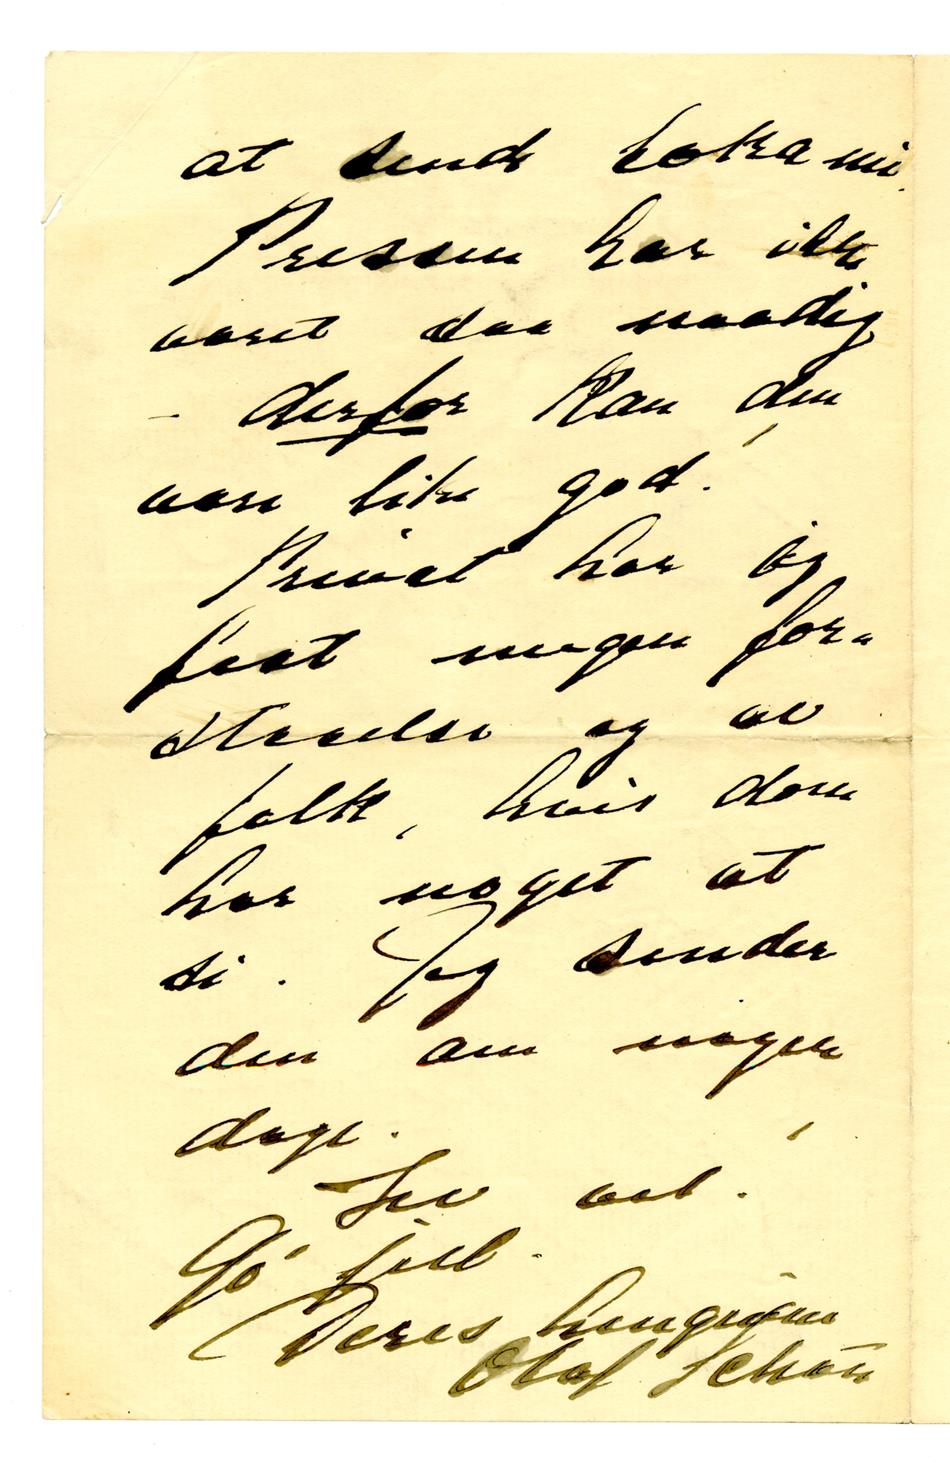 at sende
Pressen har ikke
været saa naadig
- derfor kan den
være like god.
Privat har jeg
faat megen for-
staaelse og av
folk, hvis dom
har noget at
si. Jeg sender
den om nogen
dage.
Lev vel!
Go' jul.
Deres hengivne
Olaf Schou